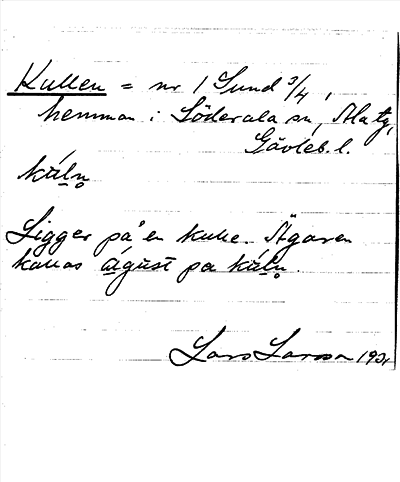 Kullen = nr 1 Sund 3/4,
hemman i Söderala sn, Ala tg,
Gävleb. l.
kúln̥
Ligger på en kulle. Ägaren
kallas agust pa kúln̥.
Lars Larsson 1931